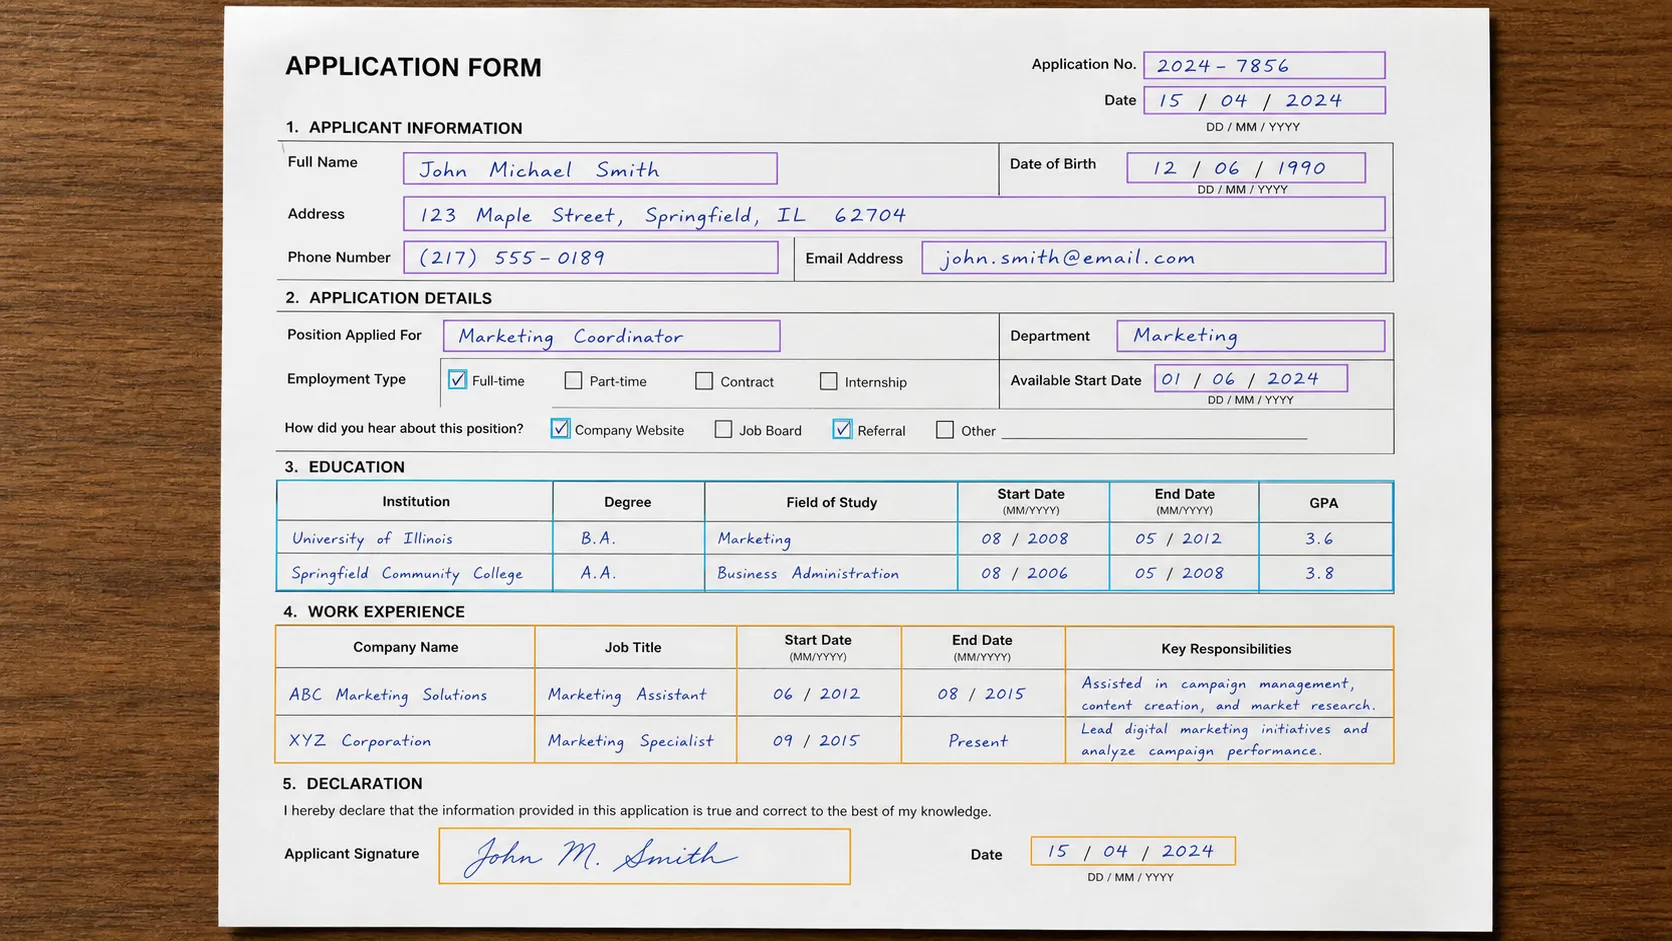 APPLICATION FORM
Application No. 2024 - 7856
Date 15 / 04 / 2024
DD / MM / YYYY
1. APPLICANT INFORMATION
Full Name John Michael Smith Date of Birth 12 / 06 / 1990
DD / MM / YYYY
Address 123 Maple Street, Springfield, IL 62704
Phone Number (217) 555-0189 Email Address john.smith@email.com
2. APPLICATION DETAILS
Position Applied For Marketing Coordinator Department Marketing
Employment Type Full-time Part-time Contract Internship Available Start Date 01 / 06 / 2024
DD / MM / YYYY
How did you hear about this position? Company Website Job Board Referral Other
3. EDUCATION
Institution Degree Field of Study Start Date (MM/YYYY) End Date (MM/YYYY) GPA
University of Illinois B.A. Marketing 08 / 2008 05 / 2012 3.6
Springfield Community College A.A. Business Administration 08 / 2006 05 / 2008 3.8
4. WORK EXPERIENCE
Company Name Job Title Start Date (MM/YYYY) End Date (MM/YYYY) Key Responsibilities
ABC Marketing Solutions Marketing Assistant 06 / 2012 08 / 2015 Assisted in campaign management,
content creation, and market research.
XYZ Corporation Marketing Specialist 09 / 2015 Present Lead digital marketing initiatives and
analyze campaign performance.
5. DECLARATION
I hereby declare that the information provided in this application is true and correct to the best of my knowledge.
Applicant Signature John M. Smith Date 15 / 04 / 2024
DD / MM / YYYY